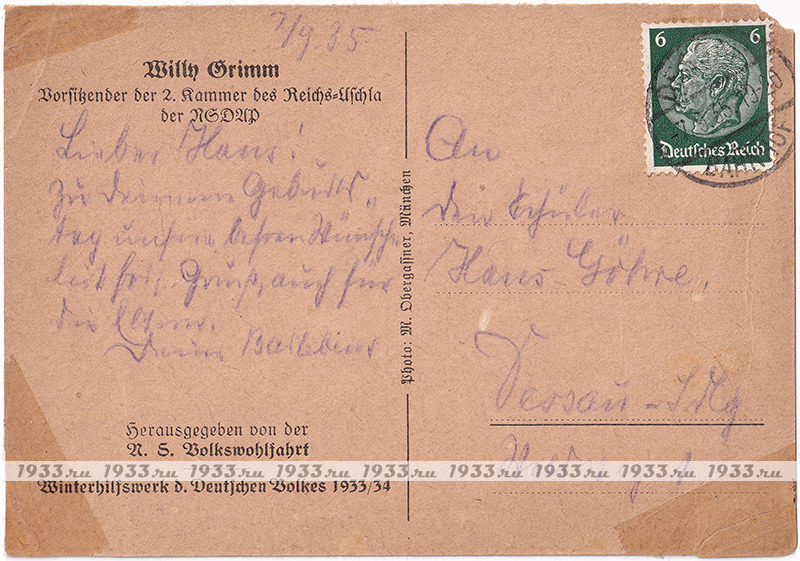 7/9 35
Willy Grimm
Vorsitzender der 2. Kammer des Reichs-Uschla
der NSDAP
Lieber Hans!
Zu Deinem Geburts„
tag unsere besten Wünsche
Gruß, auch für
die Eltern.
Deine
Herausgegeben von der
N. S. Volkswohlfahrt
Winterhilfswerk d. Deutschen Volkes 1933/34
Photo: M. Obergassner, München
6 6
Deutsches Reich
BAHNHOF
An
den Schüler
Hans
Dessau
1933.ru 1933.ru 1933.ru 1933.ru 1933.ru 1933.ru 1933.ru 1933.ru 1933.ru